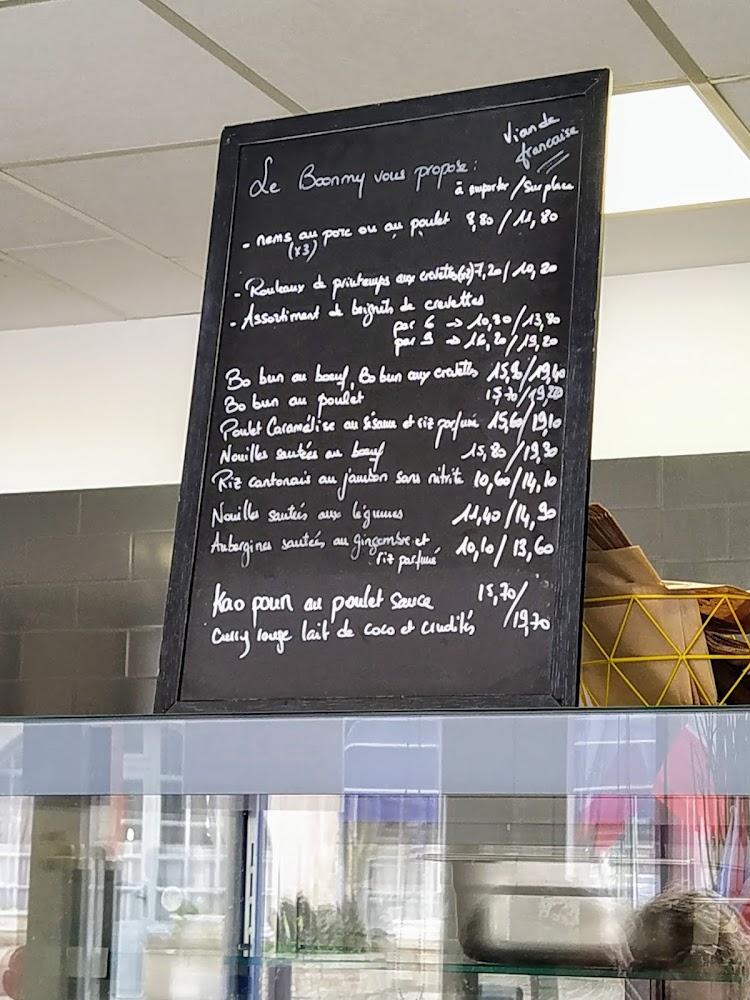 Viande
française
Le Boonmy vous propose :
à emporter / Sur place
- nems au porc ou au poulet 8,80 / 11,80
(x3)
- Rouleaux de printemps aux crevettes 7,20 / 10,20
- Assortiment de beignets de crevettes
par 6 → 10,80 / 13,80
par 9 → 16,20 / 19,20
Bo bun au bœuf, Bo bun aux crevettes
Bo bun au poulet 15,70 /
Poulet Caramélisé au sésame et riz parfumé 15,60 / 19,10
Nouilles sautées au bœuf 15,80 / 19,30
Riz cantonais au jambon sans nitrite 10,60 / 14,10
Nouilles sautées aux légumes 11,40 / 14,90
Aubergines sautées au gingembre et 10,10 / 13,60
riz parfumé
Kao poun au poulet sauce 15,70 /
Curry rouge lait de coco et crudités 19,70